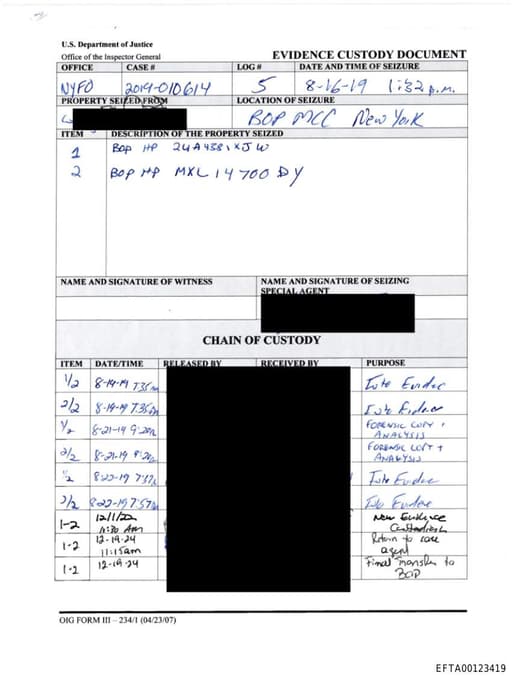 U.S. Department of Justice
Office of the Inspector General
EVIDENCE CUSTODY DOCUMENT
OFFICE CASE # LOG # DATE AND TIME OF SEIZURE
NYFO 2019-010614 5 8-16-19 1:32 p.m.
PROPERTY SEIZED FROM LOCATION OF SEIZURE
BOP MCC New York
ITEM DESCRIPTION OF THE PROPERTY SEIZED
1 BOP HP
2 BOP HP MXL14700DY
NAME AND SIGNATURE OF WITNESS NAME AND SIGNATURE OF SEIZING
SPECIAL AGENT
CHAIN OF CUSTODY
ITEM DATE/TIME RELEASED BY RECEIVED BY PURPOSE
1/2 8-19-19 7:35 Into Evidence
2/2 8-19-19 7:35 Into Evidence
1/2 8-21-19 9:20 FORENSIC COPY + ANALYSIS
2/2 8-21-19 9:20 FORENSIC COPY + ANALYSIS
1/2 8-22-19 7:57 Into Evidence
2/2 8-22-19 7:57 Into Evidence
1-2 12/1/22 New Evidence
11:30 AM Custodian
1-2 12-19-24 Return to case
11:15am agent
1-2 12-19-24 Final Transfer to
BOP
OIG FORM III – 234/1 (04/23/07)
EFTA00123419